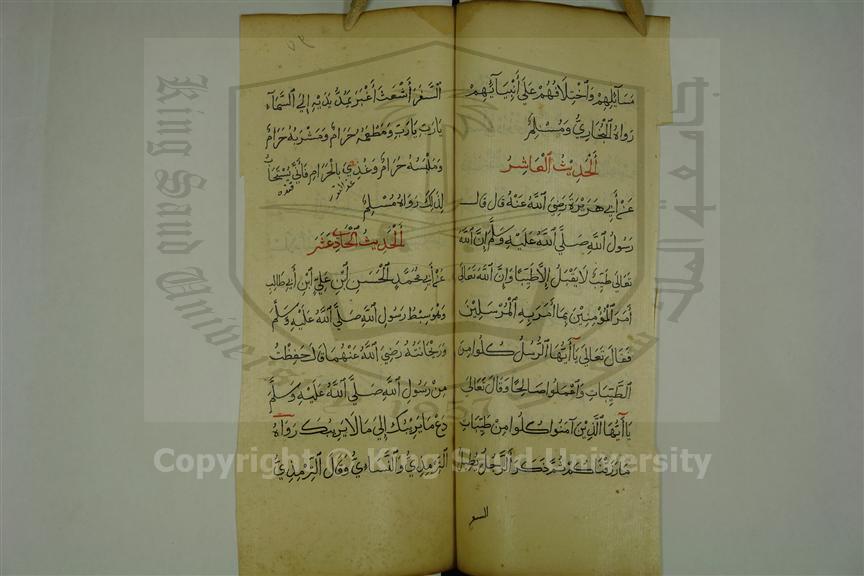 مَسَآئِلِهِمْ وَاخْتِلَافُهُمْ عَلَى أَنْبِيَآئِهِمْ
رَوَاهُ الْبُخَارِيُّ وَمُسْلِمٌ
اَلْحَدِيثُ الْعَاشِرُ
عَنْ أَبِي هُرَيْرَةَ رَضِيَ اللَّهُ عَنْهُ قَالَ قَالَ
رَسُولُ اللَّهِ صَلَّى اللَّهُ عَلَيْهِ وَسَلَّمَ إِنَّ اللَّهَ
تَعَالَى طَيِّبٌ لَا يَقْبَلُ إِلَّا طَيِّبًا وَإِنَّ اللَّهَ تَعَالَى
أَمَرَ الْمُؤْمِنِينَ بِمَا أَمَرَ بِهِ الْمُرْسَلِينَ
فَقَالَ تَعَالَى يَا أَيُّهَا الرُّسُلُ كُلُوا مِنَ
الطَّيِّبَاتِ وَاعْمَلُوا صَالِحًا وَقَالَ تَعَالَى
يَا أَيُّهَا الَّذِينَ آمَنُوا كُلُوا مِنْ طَيِّبَاتِ
مَا رَزَقْنَاكُمْ ثُمَّ ذَكَرَ الرَّجُلَ يُطِيلُ
السفر
السَّفَرَ أَشْعَثَ أَغْبَرَ يَمُدُّ يَدَيْهِ إِلَى السَّمَآءِ
يَا رَبِّ يَا رَبِّ وَمَطْعَمُهُ حَرَامٌ وَمَشْرَبُهُ حَرَامٌ
وَمَلْبَسُهُ حَرَامٌ وَغُذِيَ بِالْحَرَامِ فَأَنَّى يُسْتَجَابُ
لِذَلِكَ رَوَاهُ مُسْلِمٌ
اَلْحَدِيثُ الْحَادِي عَشَرَ
عَنْ أَبِي مُحَمَّدٍ الْحَسَنِ ابْنِ عَلِيِّ ابْنِ أَبِي طَالِبٍ
وَهُوَ سِبْطُ رَسُولِ اللَّهِ صَلَّى اللَّهُ عَلَيْهِ وَسَلَّمَ
وَرَيْحَانَتُهُ رَضِيَ اللَّهُ عَنْهُمَا قَالَ حَفِظْتُ
مِنْ رَسُولِ اللَّهِ صَلَّى اللَّهُ عَلَيْهِ وَسَلَّمَ
دَعْ مَا يَرِيبُكَ إِلَى مَا لَا يَرِيبُكَ رَوَاهُ
التِّرْمِذِيُّ وَالنَّسَائِيُّ وَقَالَ التِّرْمِذِيُّ
King Saud University
جامعة الملك سعود
1957
Copyright © King Saud University